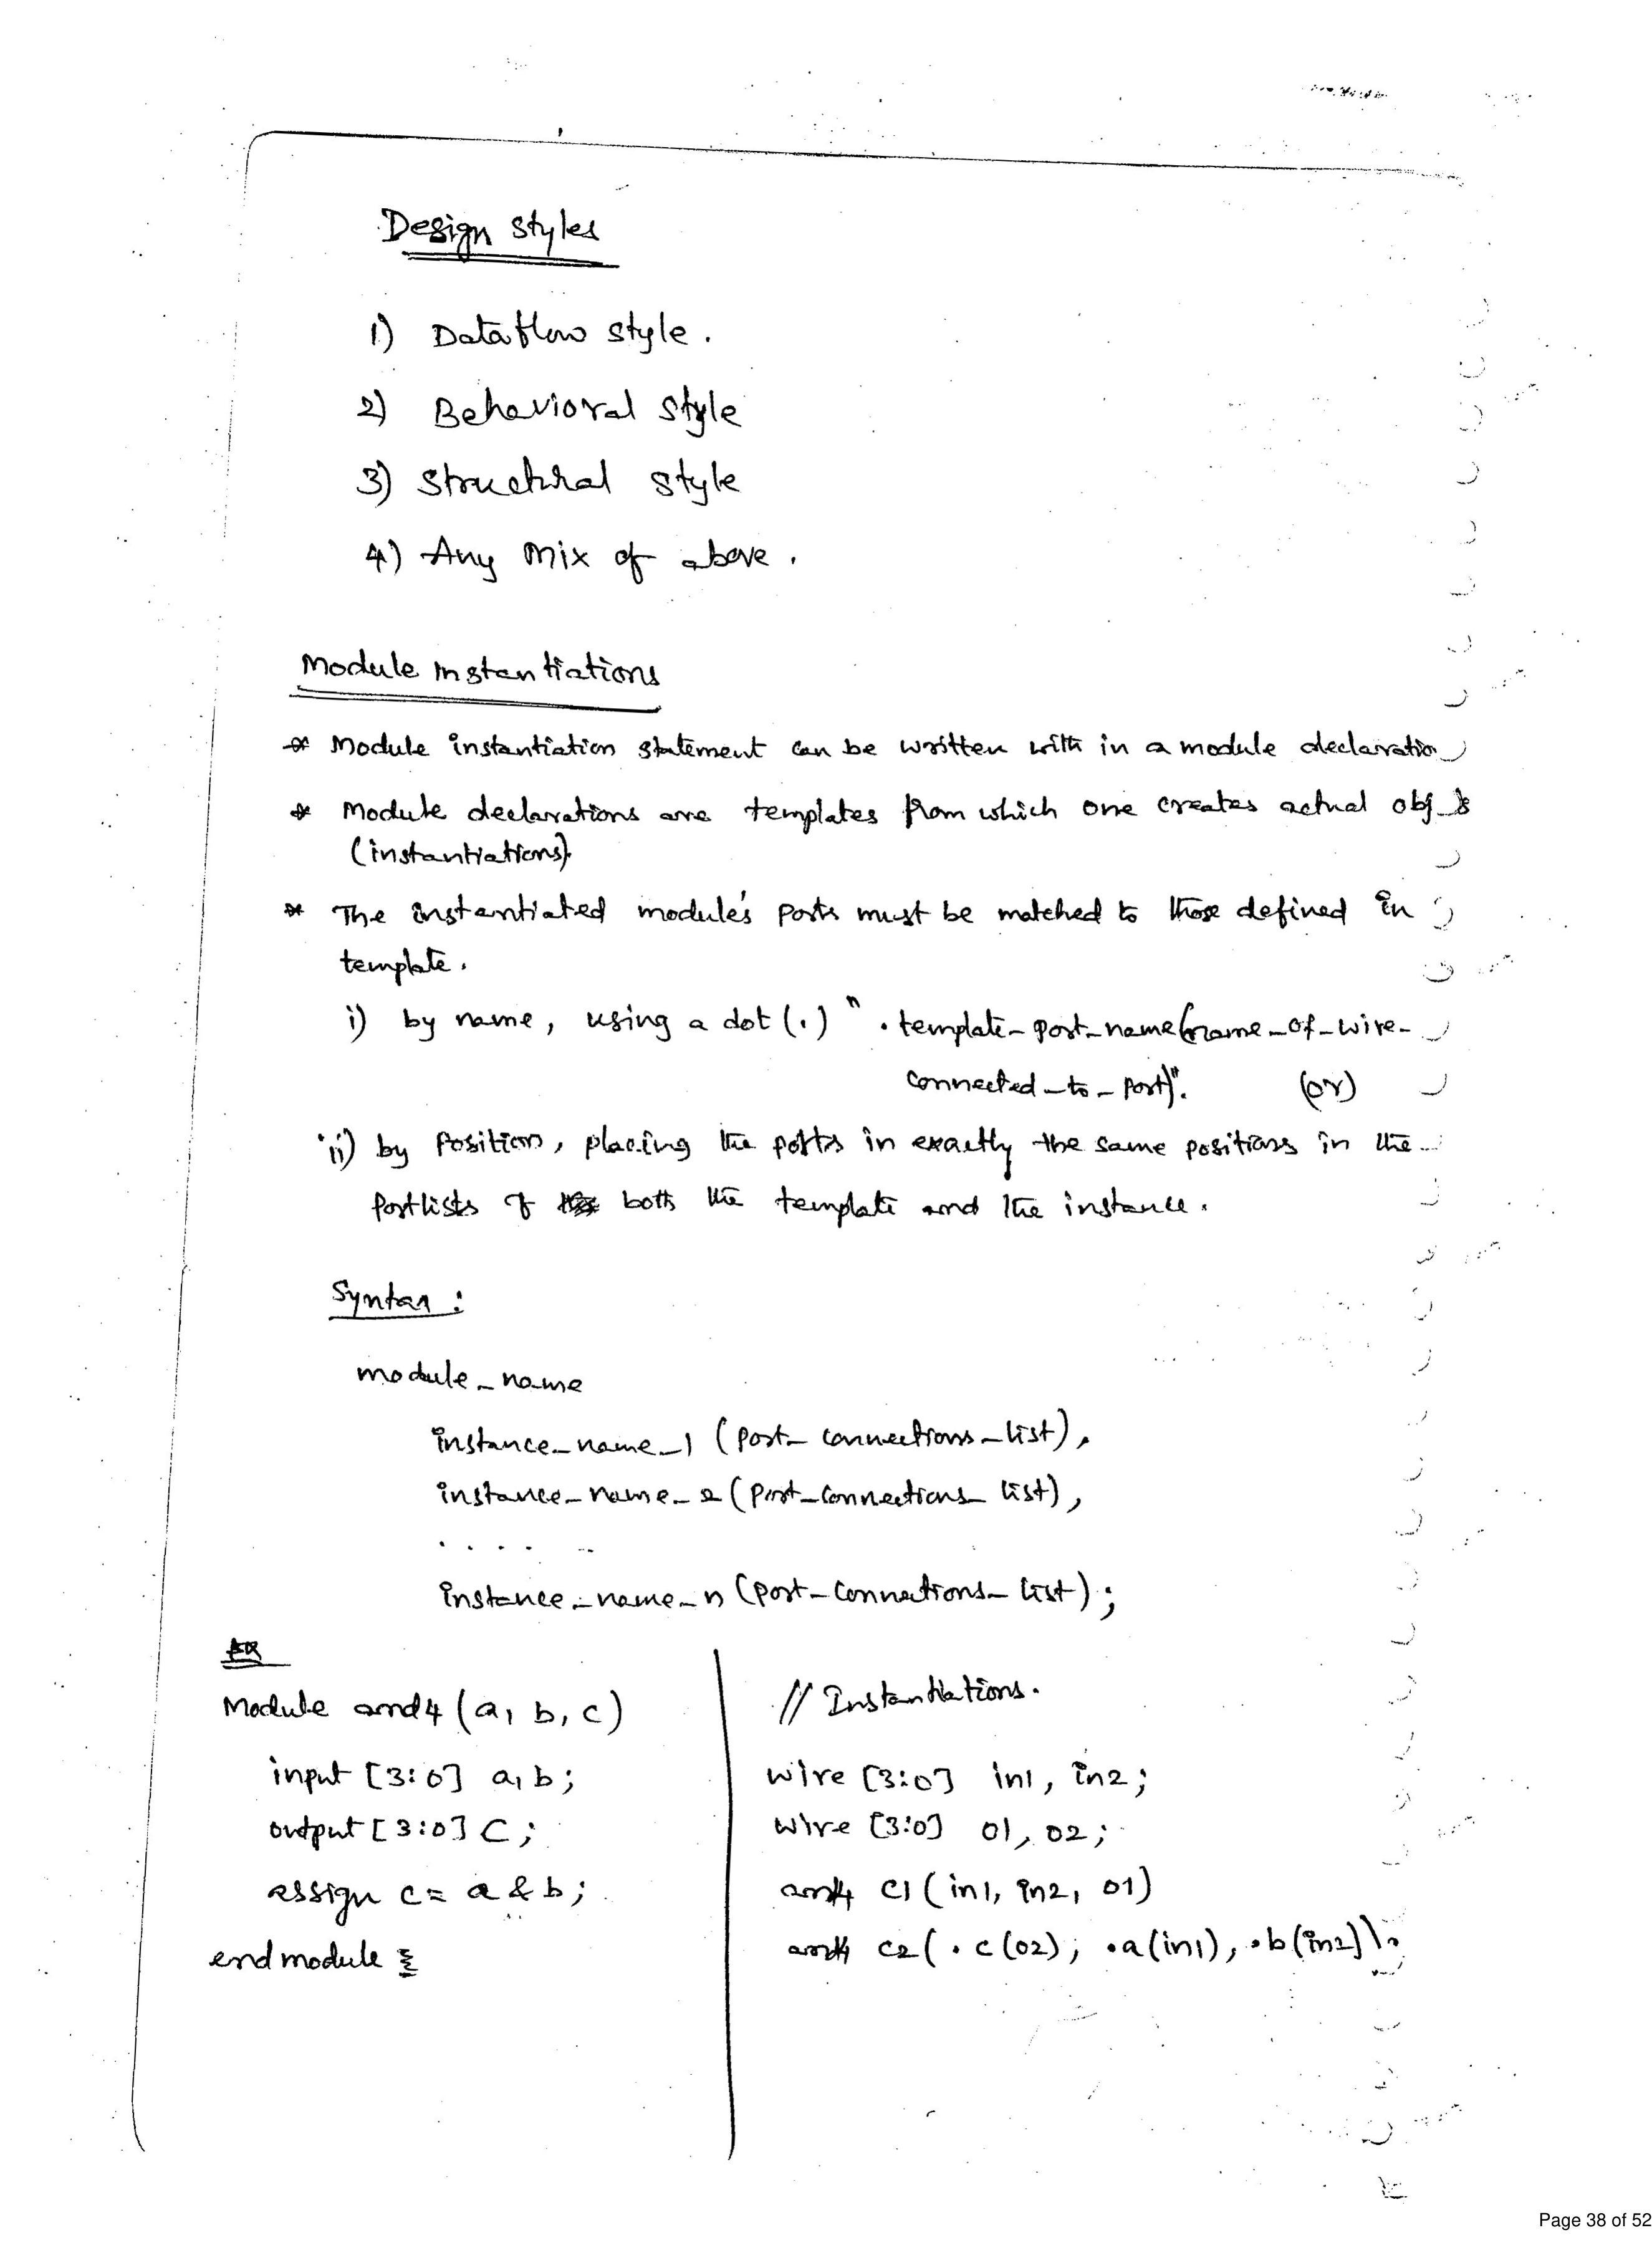 Design Styles
1) Dataflow style.
2) Behavioral style
3) Structural style
4) Any mix of above.
Module Instantiations
* Module instantiation statement can be written with in a module declaratio
* Module declarations are templates from which one creates actual obj s
(instantiations).
* The instantiated module's ports must be matched to those defined in
template.
i) by name, using a dot (.) " . template_port_name(name_of_wire_
connected_to_port)". (or)
ii) by Position, placing the ports in exactly the same positions in the
Portlists of both the template and the instance.
Syntax :
module_name
instance_name_1 (port_connections_list),
instance_name_2 (port_connections_list),
. . . . ..
instance_name_n (port_connections_list);
EX
Module and4 (a, b, c)
input [3:0] a, b;
output [3:0] C;
assign c = a & b;
endmodule
// Instantiations.
wire [3:0] in1, in2;
wire [3:0] 01, 02;
and4 C1 (in1, in2, 01)
and4 C2 ( .c(02); .a(in1), .b(in2)).
Page 38 of 52